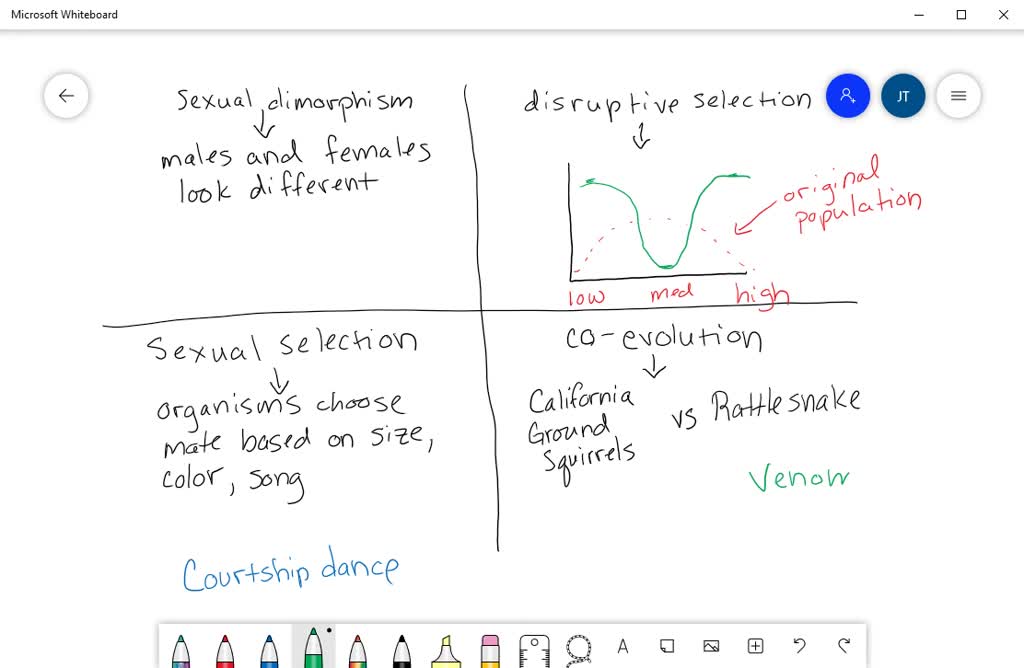 Microsoft Whiteboard
JT
Sexual dimorphism
males and females
look different
disruptive selection
original
population
low med high
Sexual selection
organisms choose
mate based on size,
color, song
Courtship dance
co-evolution
California
Ground
Squirrels
vs Rattlesnake
Venom
A